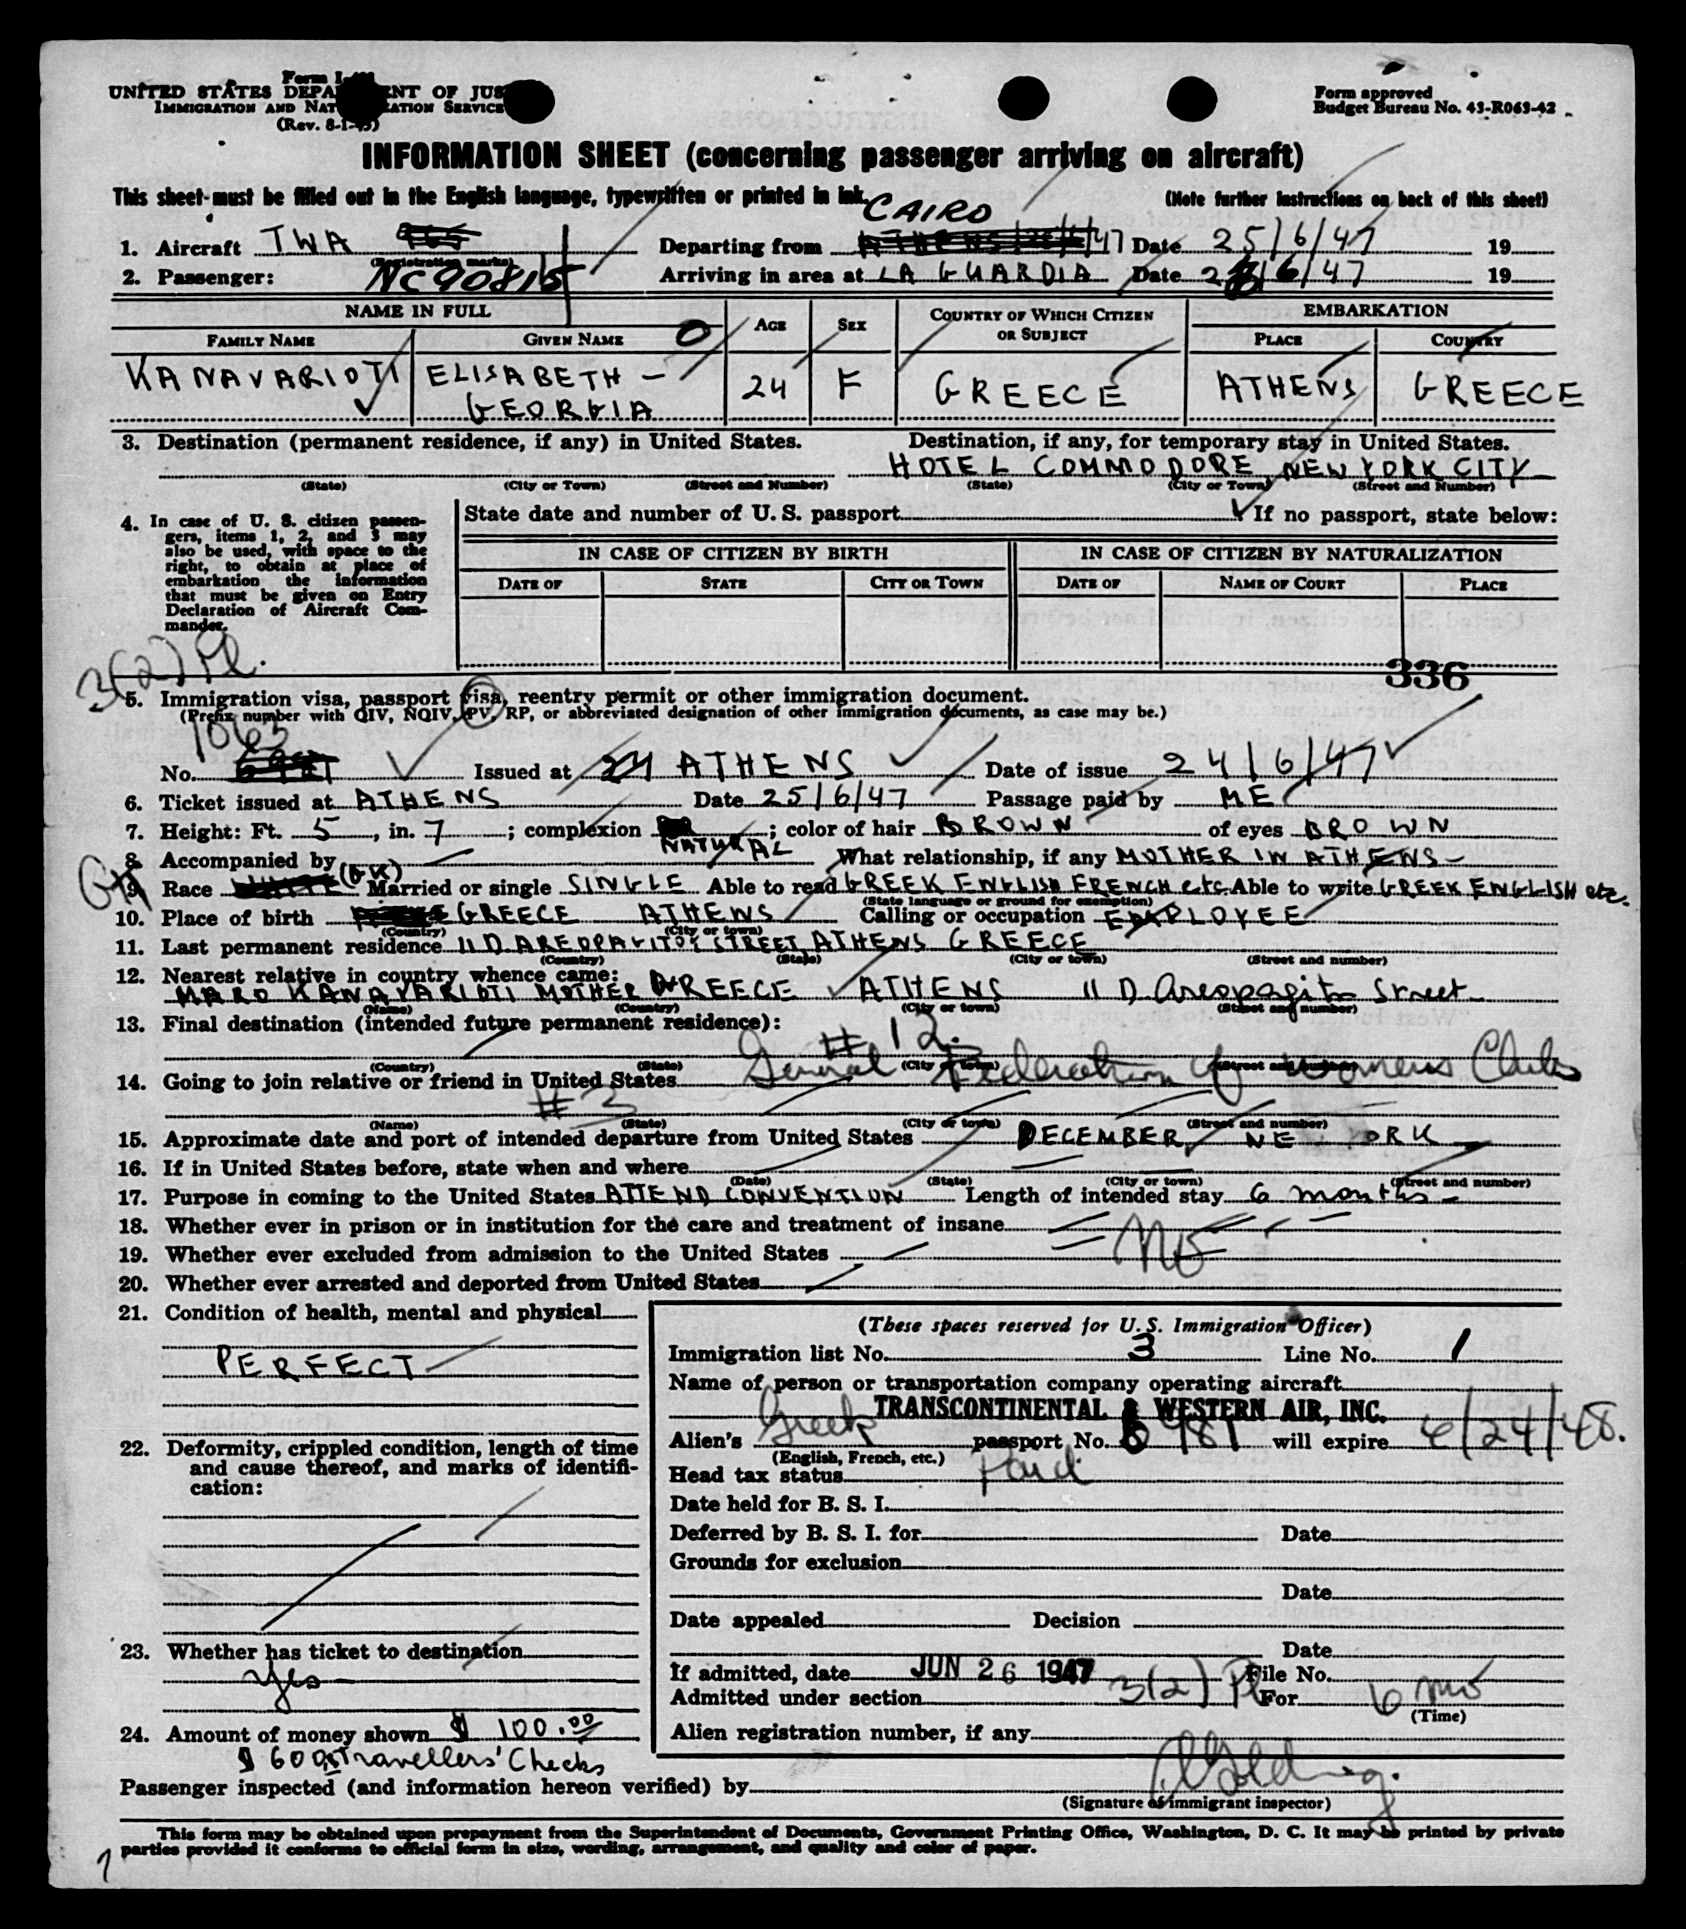 Form I-
UNITED STATES DEPA NT OF JUS
IMMIGRATION AND NAT ZATION SERVICE
(Rev. 8-1-45)
Form approved
Budget Bureau No. 43-R063-42
INFORMATION SHEET (concerning passenger arriving on aircraft)
This sheet must be filled out in the English language, typewritten or printed in ink.
(Note further instructions on back of this sheet)
CAIRO
1. Aircraft TWA Departing from /47 Date 25/6/47 19
(Registration marks)
2. Passenger: NC90815 Arriving in area at LA GUARDIA Date 26/6/47 19
NAME IN FULL AGE SEX COUNTRY OF WHICH CITIZEN OR SUBJECT EMBARKATION
FAMILY NAME GIVEN NAME O PLACE COUNTRY
KANAVARIOTI ELISABETH - 24 F GREECE ATHENS GREECE
GEORGIA
3. Destination (permanent residence, if any) in United States. Destination, if any, for temporary stay in United States.
HOTEL COMMODORE NEW YORK CITY
(State) (City or Town) (Street and Number) (State) (City or Town) (Street and Number)
4. In case of U. S. citizen passen-
gers, items 1, 2, and 3 may
also be used, with space to the
right, to obtain at place of
embarkation the information
that must be given on Entry
Declaration of Aircraft Com-
mander.
State date and number of U. S. passport If no passport, state below:
IN CASE OF CITIZEN BY BIRTH IN CASE OF CITIZEN BY NATURALIZATION
DATE OF STATE CITY OR TOWN DATE OF NAME OF COURT PLACE
3(2) Pl.
336
5. Immigration visa, passport visa, reentry permit or other immigration document.
(Prefix number with QIV, NQIV, PV, RP, or abbreviated designation of other immigration documents, as case may be.)
1063
No. Issued at ATHENS Date of issue 24/6/47
6. Ticket issued at ATHENS Date 25/6/47 Passage paid by ME
7. Height: Ft. 5, in. 7; complexion NATURAL; color of hair BROWN of eyes BROWN
8. Accompanied by What relationship, if any MOTHER IN ATHENS -
9. Race (GK) Married or single SINGLE Able to read GREEK ENGLISH FRENCH etc. Able to write GREEK ENGLISH etc.
(State language or ground for exemption)
10. Place of birth GREECE ATHENS Calling or occupation EMPLOYEE
(Country) (City or town)
11. Last permanent residence 11 D. AREOPAGITOY STREET ATHENS GREECE
(Country) (State) (City or town) (Street and number)
12. Nearest relative in country whence came:
MARO KANAVARIOTI MOTHER GREECE ATHENS 11 D. Areopagitou Street
(Name) (Country) (City or town) (Street and number)
13. Final destination (intended future permanent residence):
# 12.
(Country) (State) (City or town) (Street and number)
14. Going to join relative or friend in United States General Federation of Womens Clubs
# 3
(Name) (State) (City or town) (Street and number)
15. Approximate date and port of intended departure from United States DECEMBER, NEW YORK
16. If in United States before, state when and where
(Date) (State) (City or town) (Street and number)
17. Purpose in coming to the United States ATTEND CONVENTION Length of intended stay 6 months -
18. Whether ever in prison or in institution for the care and treatment of insane
No
19. Whether ever excluded from admission to the United States
20. Whether ever arrested and deported from United States
21. Condition of health, mental and physical
PERFECT
22. Deformity, crippled condition, length of time
and cause thereof, and marks of identifi-
cation:
23. Whether has ticket to destination
Yes
24. Amount of money shown $ 100.00
$ 600.00 Travellers' Checks
(These spaces reserved for U. S. Immigration Officer)
Immigration list No. 3 Line No. 1
Name of person or transportation company operating aircraft
TRANSCONTINENTAL & WESTERN AIR, INC.
Alien's Greek passport No. 6981 will expire 6/24/48.
(English, French, etc.)
Head tax status Paid
Date held for B. S. I.
Deferred by B. S. I. for Date
Grounds for exclusion
Date
Date appealed Decision
Date
If admitted, date JUN 26 1947 File No.
Admitted under section 3(2) Pl For 6 mo
(Time)
Alien registration number, if any
Passenger inspected (and information hereon verified) by
(Signature of immigrant inspector)
This form may be obtained upon prepayment from the Superintendent of Documents, Government Printing Office, Washington, D. C. It may be printed by private
parties provided it conforms to official form in size, wording, arrangement, and quality and color of paper.